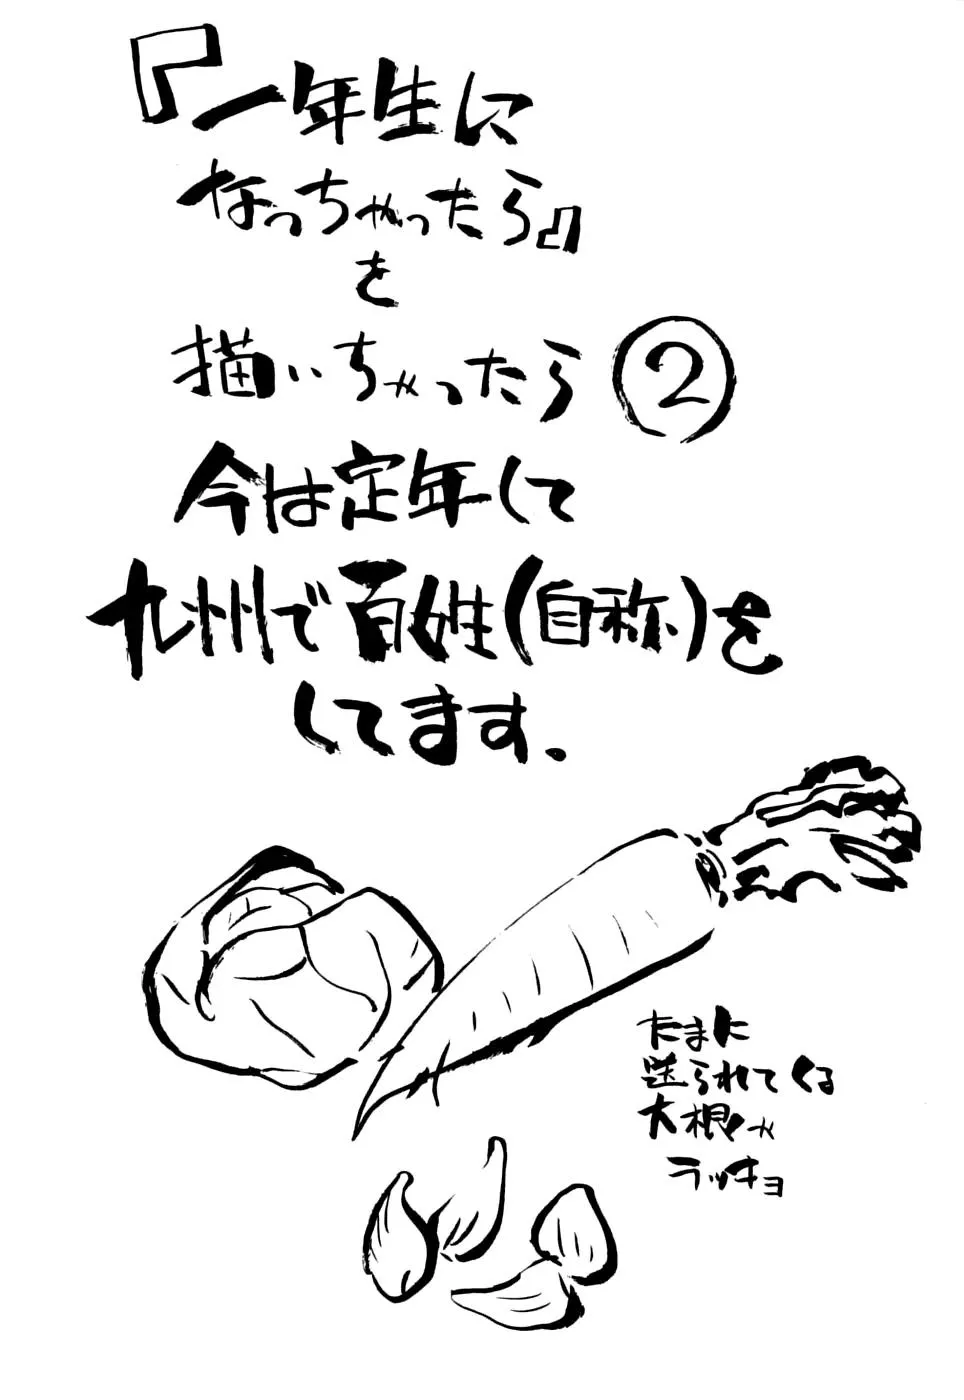 『一年生に
なっちゃったら』
を
描いちゃったら②
今は定年して
九州で百姓(自称)を
してます.
たまに
送られてくる
大根や
ラッキョ